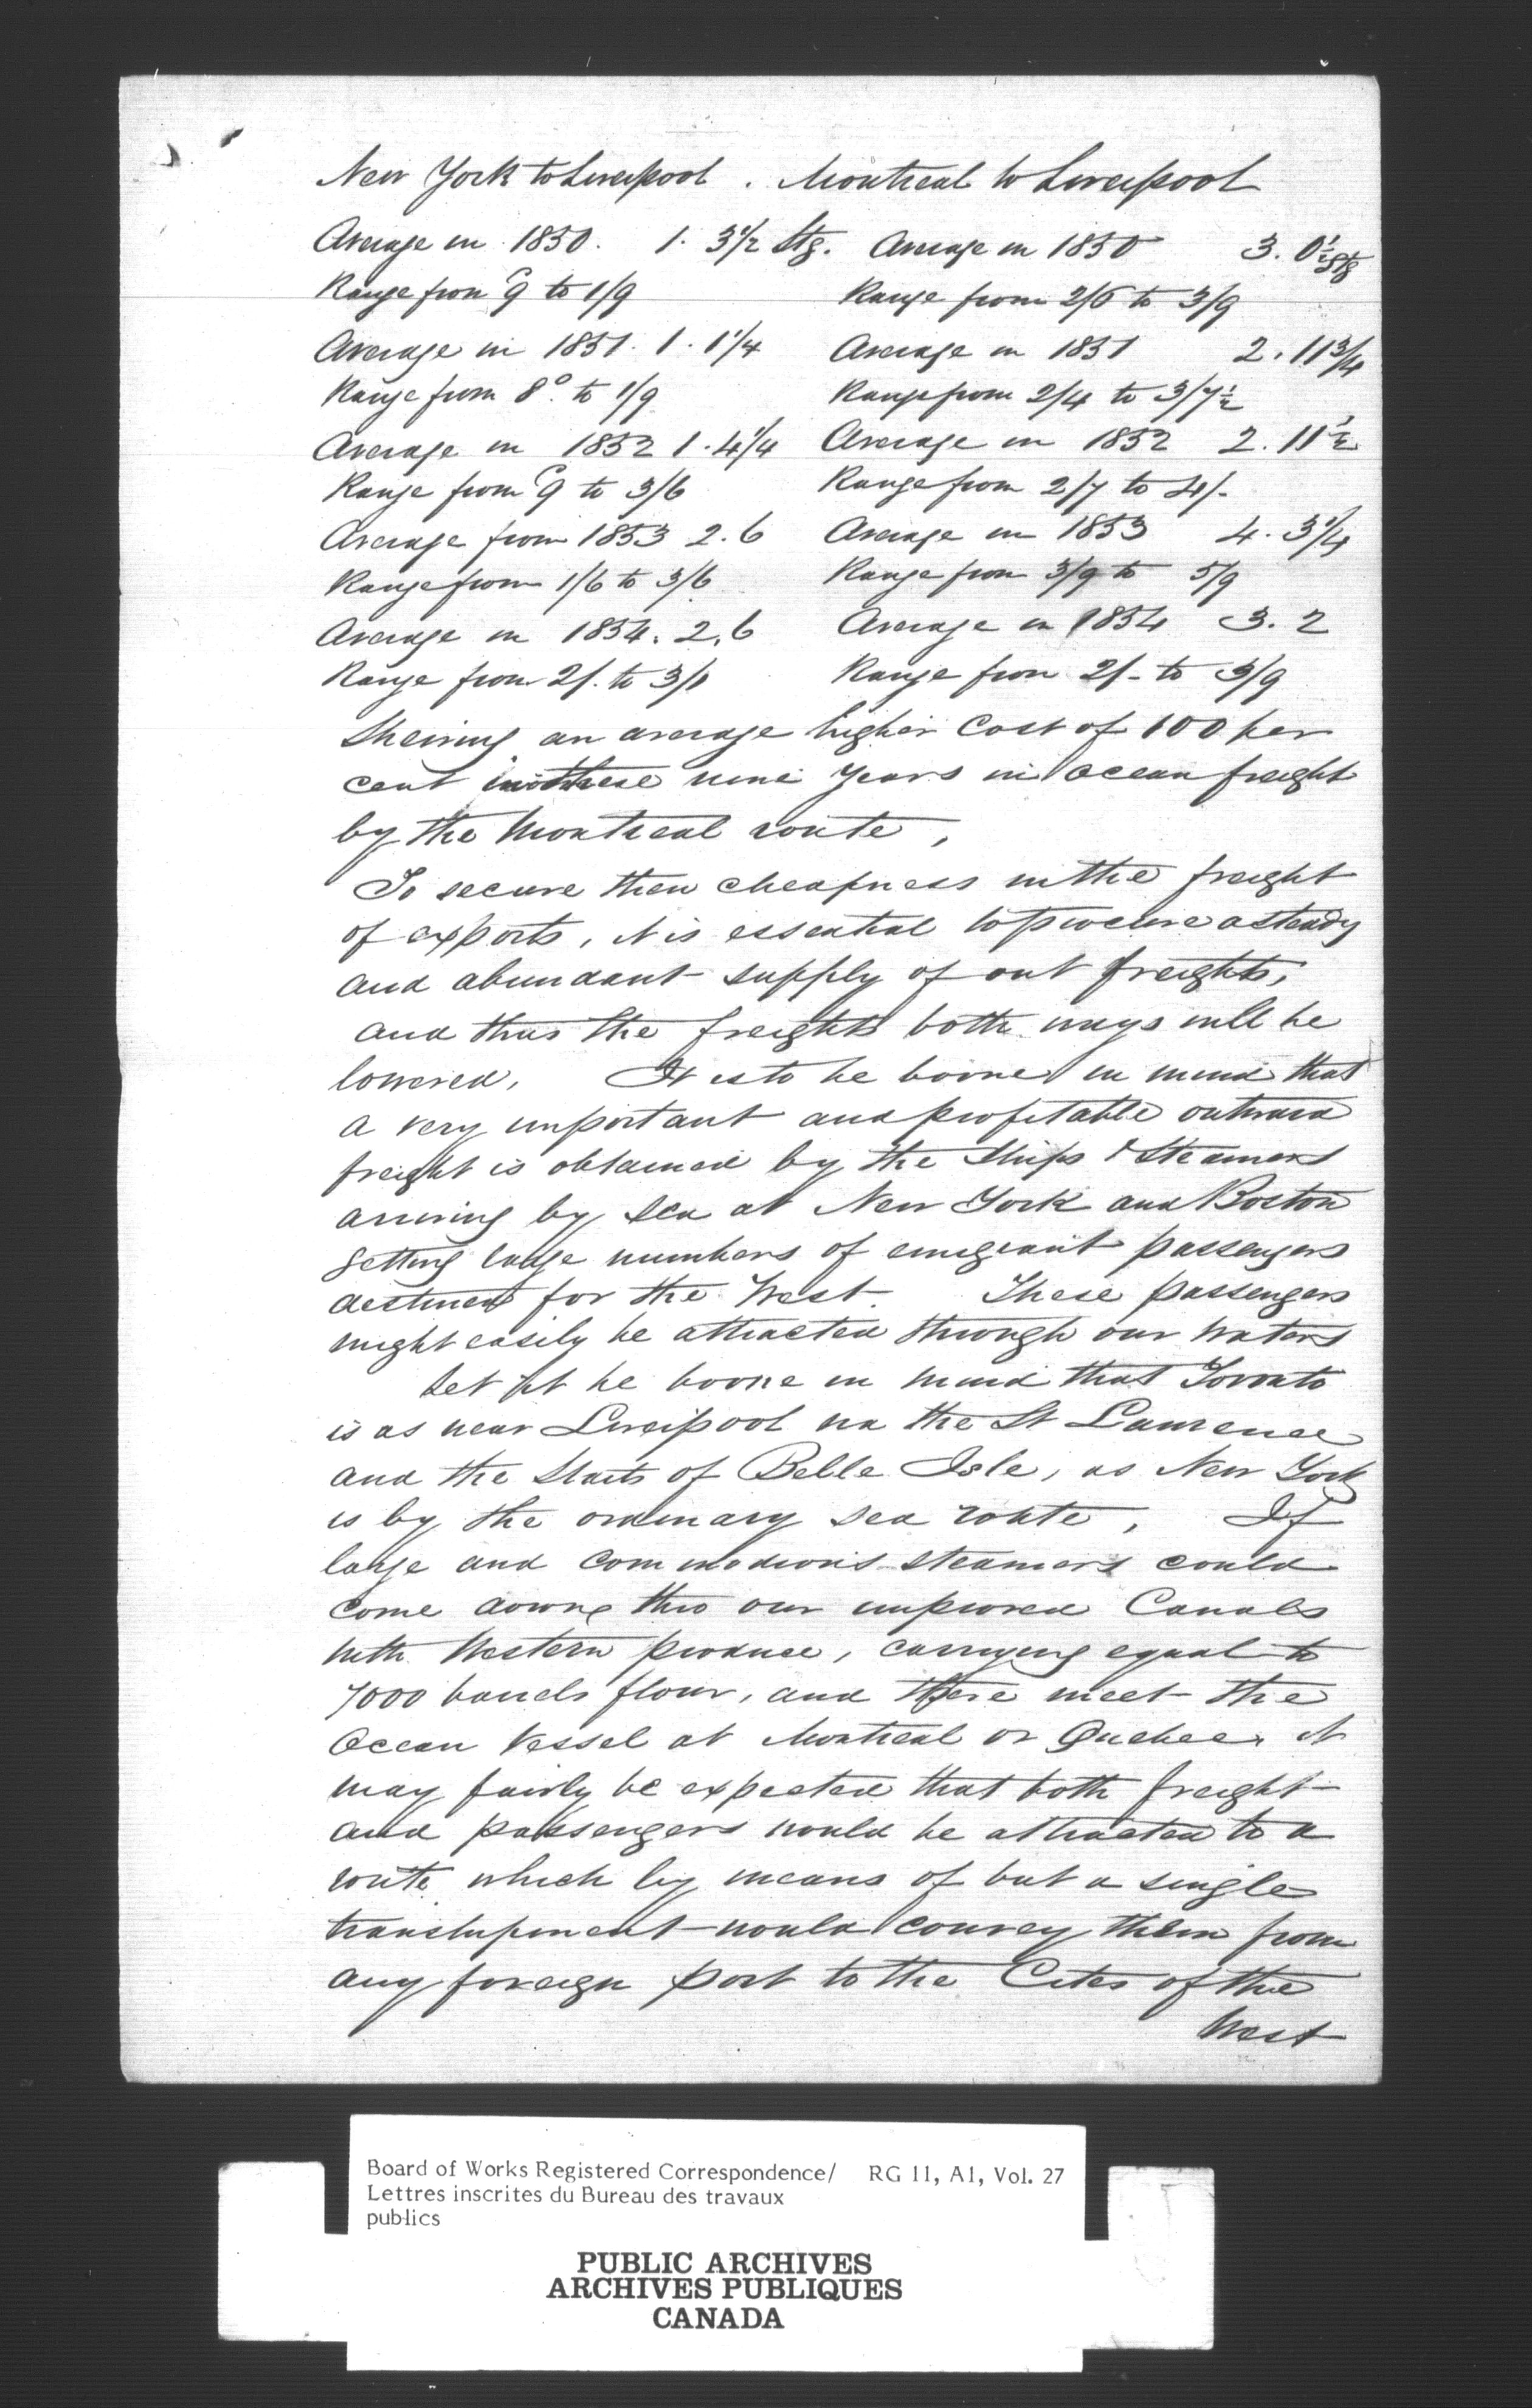 New York to Liverpool . Montreal to Liverpool
Average in 1850. 1. 3 1/2 Stg. Average in 1850 3. 0 1/2 Stg
Range from 9 to 1/9 Range from 2/6 to 3/9
Average in 1851. 1. 1 1/4 Average in 1851 2. 11 3/4
Range from 8 to 1/9 Range from 2/4 to 3/7 1/2
Average in 1852 1. 4 1/4 Average in 1852 2. 11 1/2
Range from 9 to 3/6 Range from 2/7 to 4/-
Average from 1853 2. 6 Average in 1853 4. 3 1/4
Range from 1/6 to 3/6 Range from 3/9 to 5/9
Average in 1854. 2. 6 Average in 1854 3. 2
Range from 2/. to 3/1 Range from 2/- to 3/9
Shewing an average higher Cost of 100 per
cent in these nine Years in ocean freight
by the Montreal route,
To secure then cheapness in the freight
of exports, it is essential to procure a steady
and abundant supply of out freights,
and thus the freights both ways will be
lowered, It is to be borne in mind that
a very important and profitable outward
freight is obtained by the Ships & Steamers
arriving by sea at New York and Boston
getting large numbers of emigrant passengers
destined for the West. These passengers
might easily be attracted through our waters
Let it be borne in mind that Toronto
is as near Liverpool via the St Lawrence
and the Straits of Belle Isle, as New York
is by the ordinary sea route, If
large and commodious steamers could
come down thro our improved Canals
with Western produce, carrying equal to
7000 barrels flour, and there meet the
Ocean Vessel at Montreal or Quebec, it
may fairly be expected that both freight
and passengers would be attracted to a
route which by means of but a single
transhipment would convey them from
any foreign port to the Cities of the
West
Board of Works Registered Correspondence/ RG 11, A1, Vol. 27
Lettres inscrites du Bureau des travaux
publics
PUBLIC ARCHIVES
ARCHIVES PUBLIQUES
CANADA